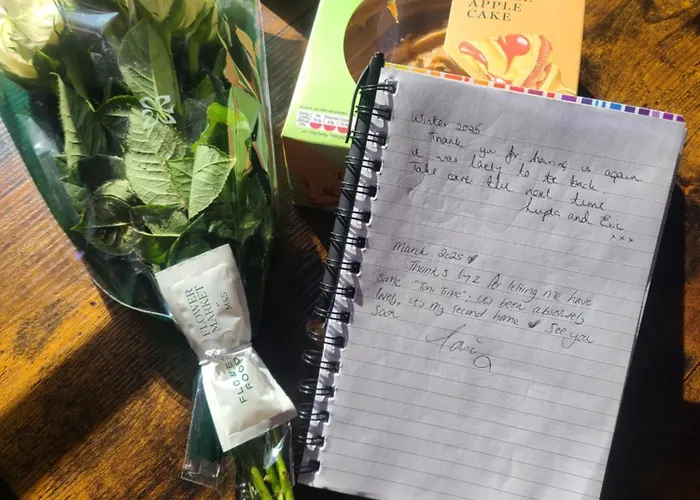 APPLE
CAKE
Winter 2025
Thank you for having us again
it was lovely to be back
Take care till next time
Lupta and Eric
xxx
March 2025
Thanks for letting me have
some "Toni Time". It's been absolutely
lovely, it's my second home See you
soon
M&S
FLOWER
MARKET
FLOWER
FOOD